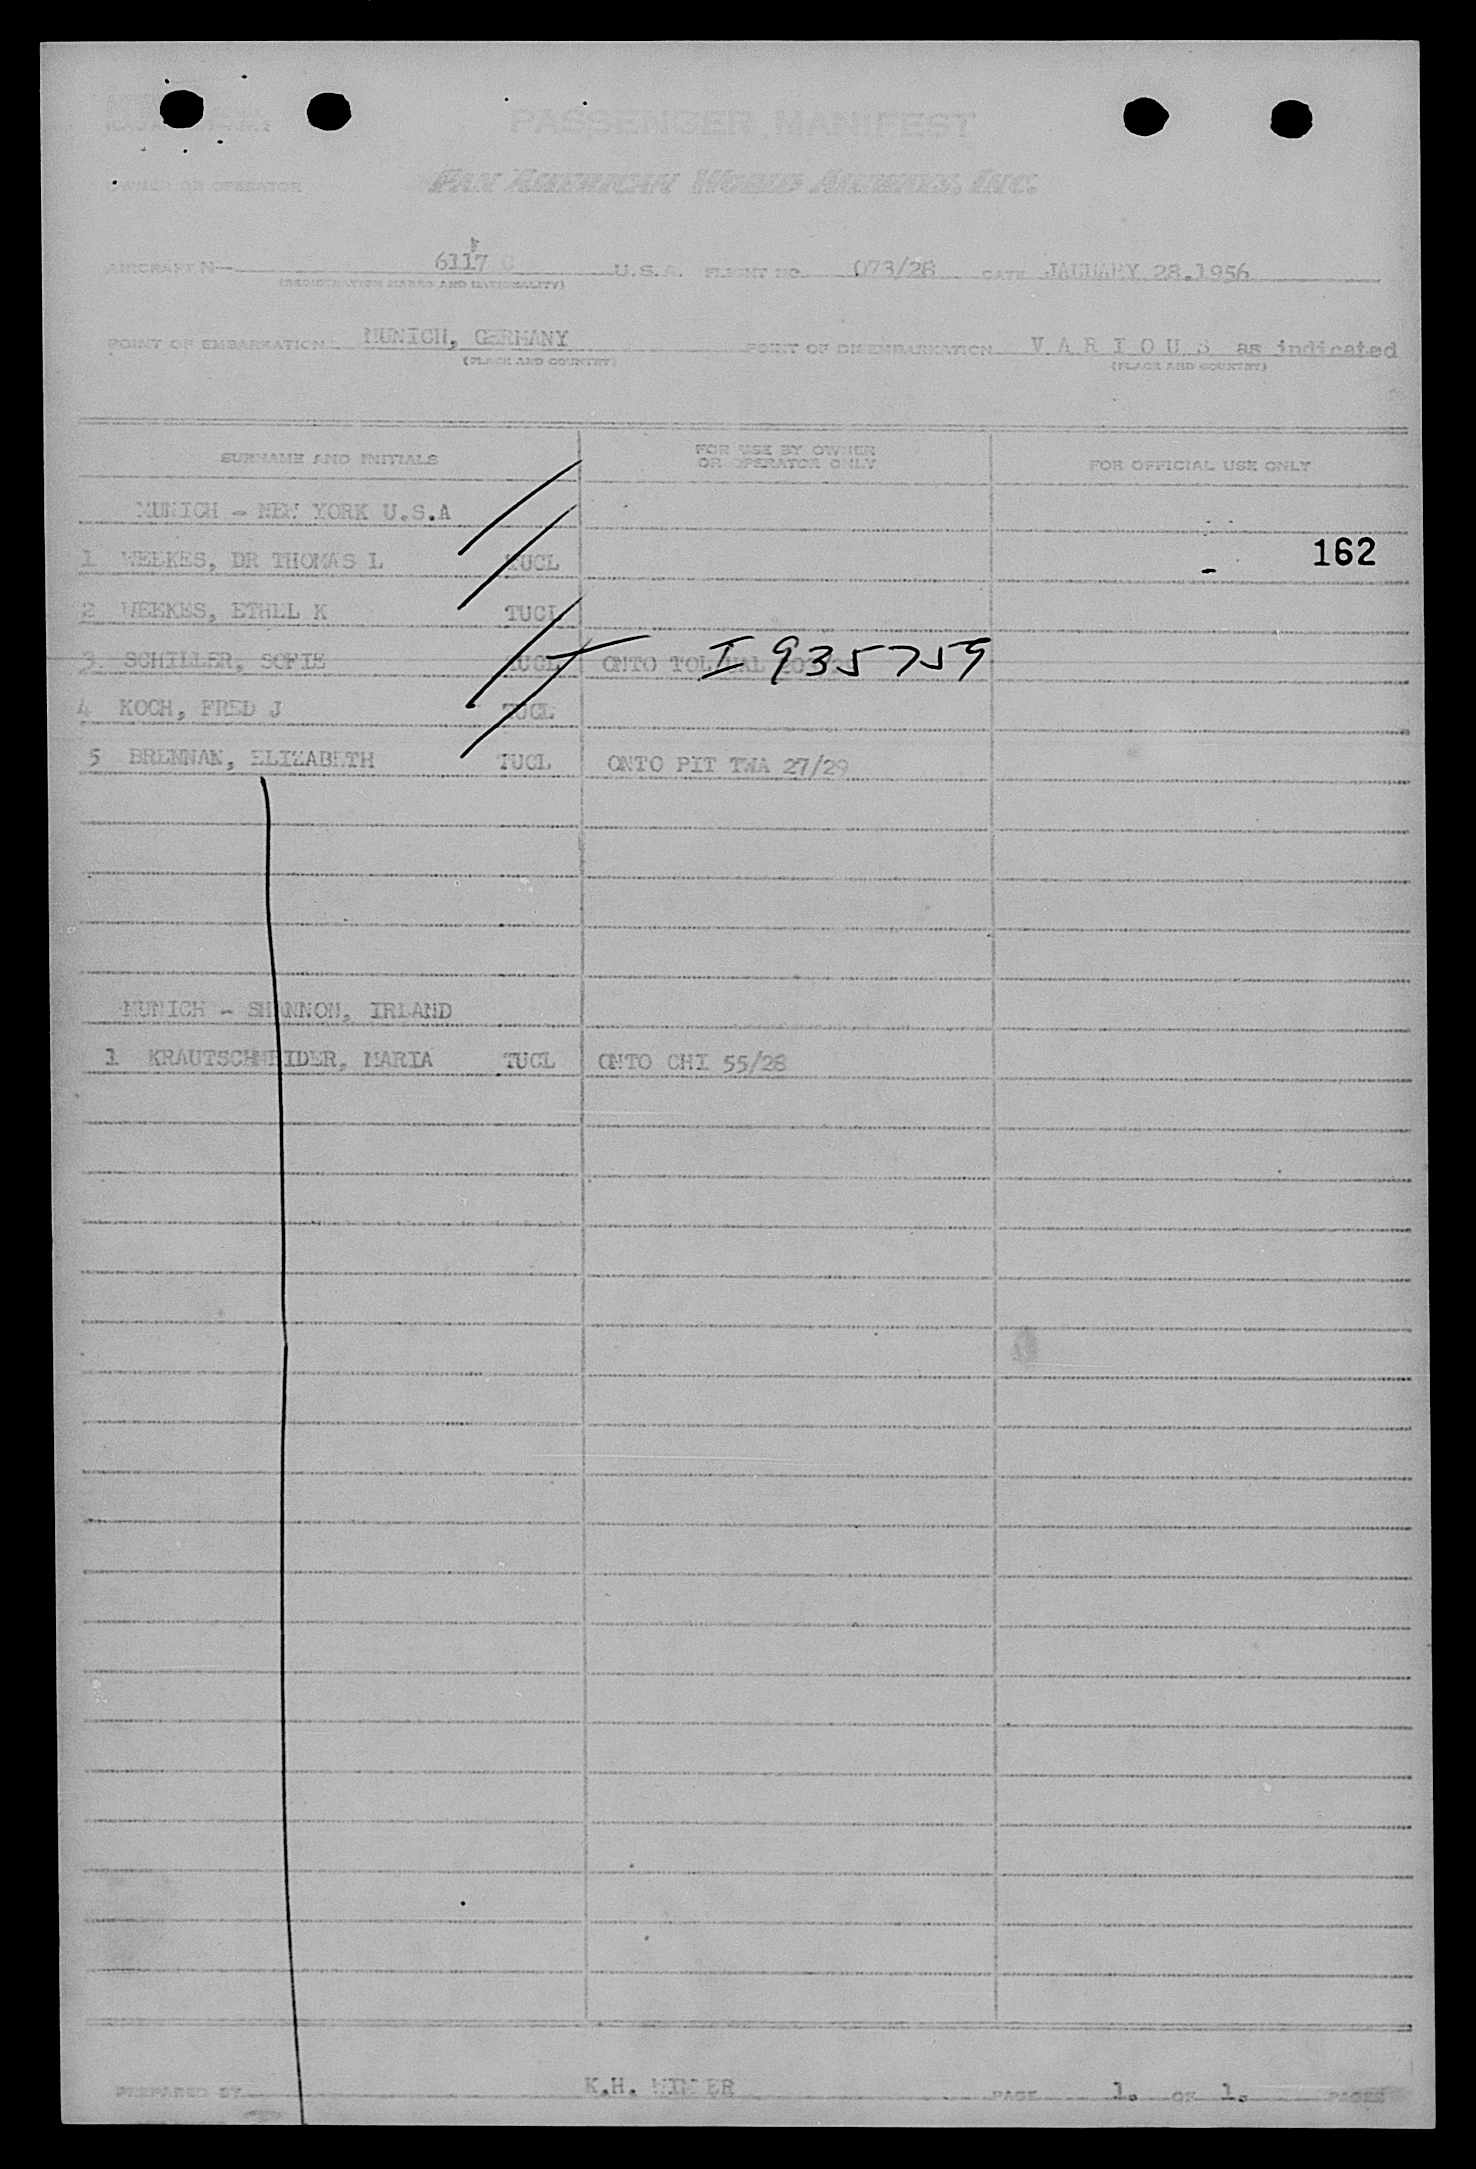 PASSENGER MANIFEST
OWNER OR OPERATOR PAN AMERICAN WORLD AIRWAYS, INC.
AIRCRAFT N 6117 C U.S.A. FLIGHT NO. 073/28 DATE JANUARY 28.1956
(REGISTRATION MARKS AND NATIONALITY)
POINT OF EMBARKATION MUNICH, GERMANY POINT OF DISEMBARKATION V A R I O U S as indicated
(PLACE AND COUNTRY) (PLACE AND COUNTRY)
SURNAME AND INITIALS FOR USE BY OWNER OR OPERATOR ONLY FOR OFFICIAL USE ONLY
MUNICH - NEW YORK U.S.A
162
1 WEEKES, DR THOMAS L TUCL
2 WEEKES, ETHEL K TUCL
3. SCHILLER, SOFIE TUCL ONTO TOL I 935759
4 KOCH, FRED J TUCL
5 BRENNAN, ELIZABETH TUCL ONTO PIT TWA 27/29
MUNICH - SHANNON, IRLAND
1 KRAUTSCHNEIDER, MARIA TUCL ONTO CHI 55/28
PREPARED BY K.H. PAGE 1. OF 1. PAGES